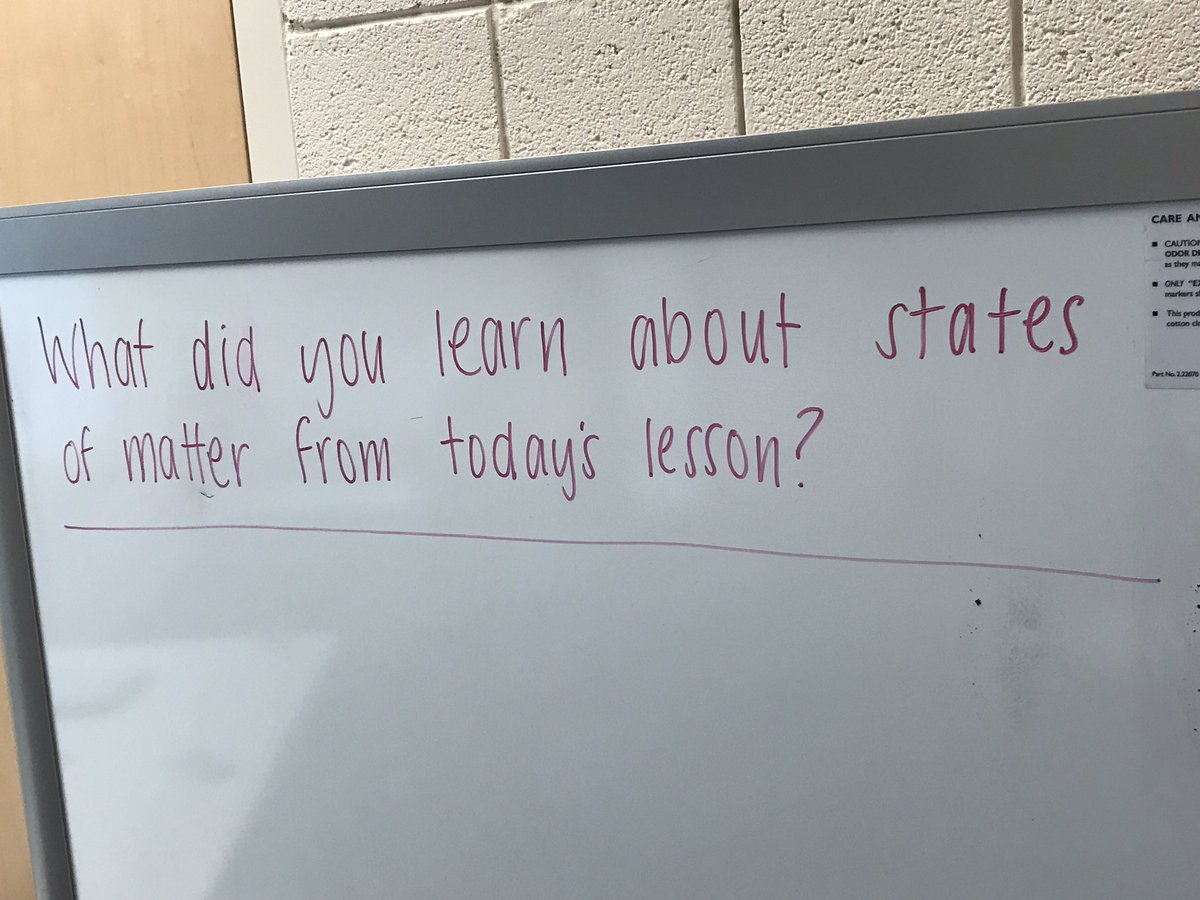 What did you learn about states
of matter from today's lesson?
CARE AN
CAUTION
ODOR
as they
ONLY "EX
markers
This prod
cotton
Part No. 2.22070